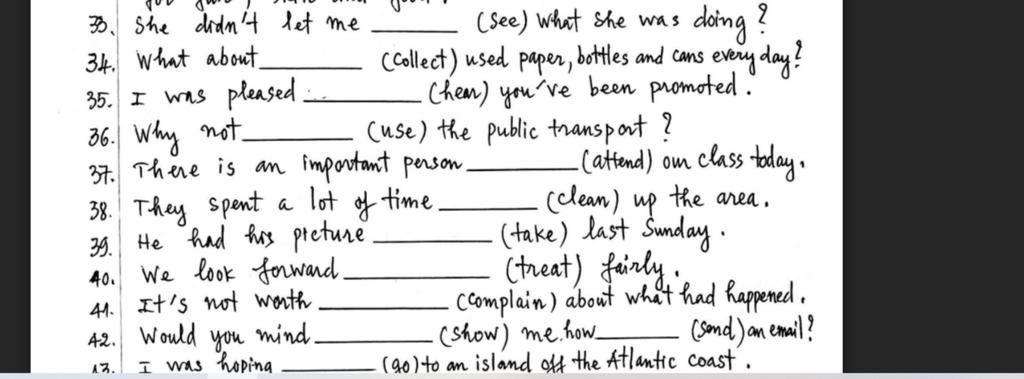 33. She didn't let me ________ (see) what she was doing?
34. What about ________ (collect) used paper, bottles and cans every day?
35. I was pleased ________ (hear) you've been promoted.
36. Why not ________ (use) the public transport?
37. There is an important person ________ (attend) our class today.
38. They spent a lot of time ________ (clean) up the area.
39. He had his picture ________ (take) last Sunday.
40. We look forward ________ (treat) fairly.
41. It's not worth ________ (complain) about what had happened.
42. Would you mind ________ (show) me how ________ (send) an email?
43. I was hoping ________ (go) to an island off the Atlantic coast.